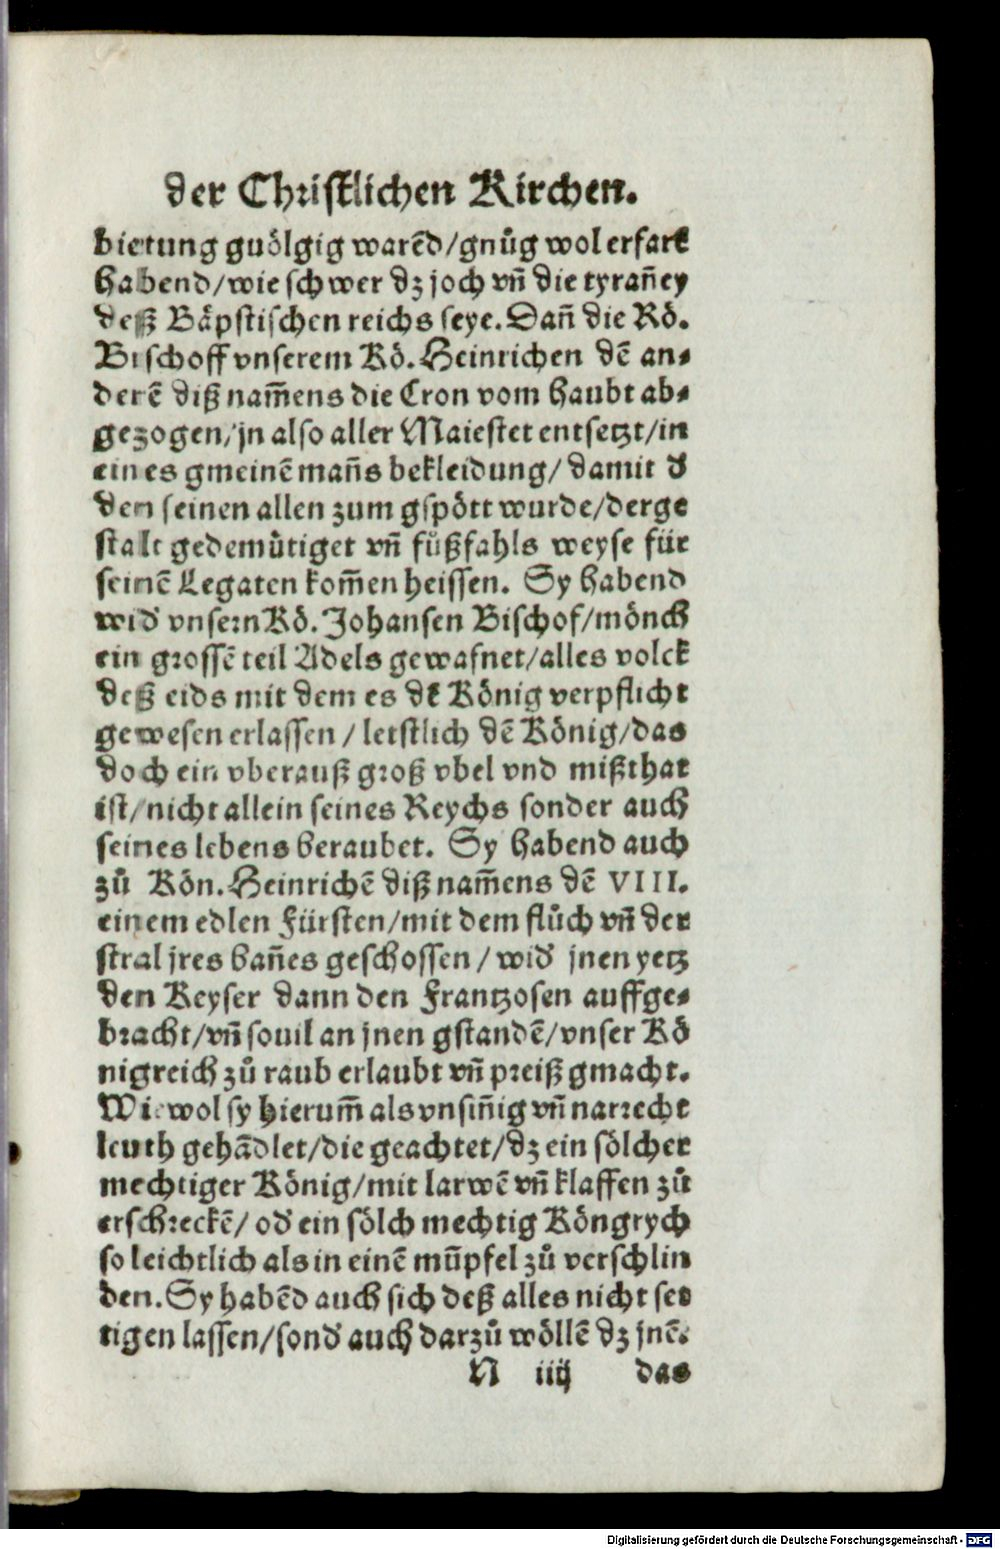 der Christlichen Kirchen.
bietung guölgig warēd/gnůg wol erfart
habend/wie schwer dz joch vñ die tyrañey
deß Bäpstischen reichs seye. Dañ die Rö.
Bischoff vnserem Kö. Heinrichen dē an-
derē diß nam̄ens die Cron vom haubt ab-
gezogen/jn also aller Maiestet entsetzt/in
eines gmeinē mañs bekleidung/damit d'
den seinen allen zum gspött wurde/derge
stalt gedemütiget vñ fůßfahls weyse für
seinē Legaten kom̄en heissen. Sy habend
wid' vnsern Kö. Johansen Bischof/mönch
ein grossē teil Adels gewafnet/alles volck
deß eids mit dem es dē König verpflicht
gewesen erlassen/letstlich dē König/das
doch ein vberauß groß vbel vnd mißthat
ist/nicht allein seines Reychs sonder auch
seines lebens beraubet. Sy habend auch
zů Kön. Heinrichē diß nam̄ens dē VIII.
einem edlen Fürsten/mit dem flůch vñ der
stral jres bañes geschossen/wid' jnen yetz
den Keyser dann den Frantzosen auffge-
bracht/vñ souil an jnen gstandē/vnser Kö
nigreich zů raub erlaubt vñ preiß gmacht.
Wiewol sy hierum̄ als vnsiñig vñ narrecht
leuth gehādlet/die geachtet/dz ein sölcher
mechtiger König/mit larwē vñ klaffen zů
erschreckē/od' ein sölch mechtig Köngrych
so leichtlich als in einē mūpfel zů verschlin
den. Sy habēd auch sich deß alles nicht set
tigen lassen/sond' auch darzů wöllē dz jnē.
N iiij das
Digitalisierung gefördert durch die Deutsche Forschungsgemeinschaft - DFG